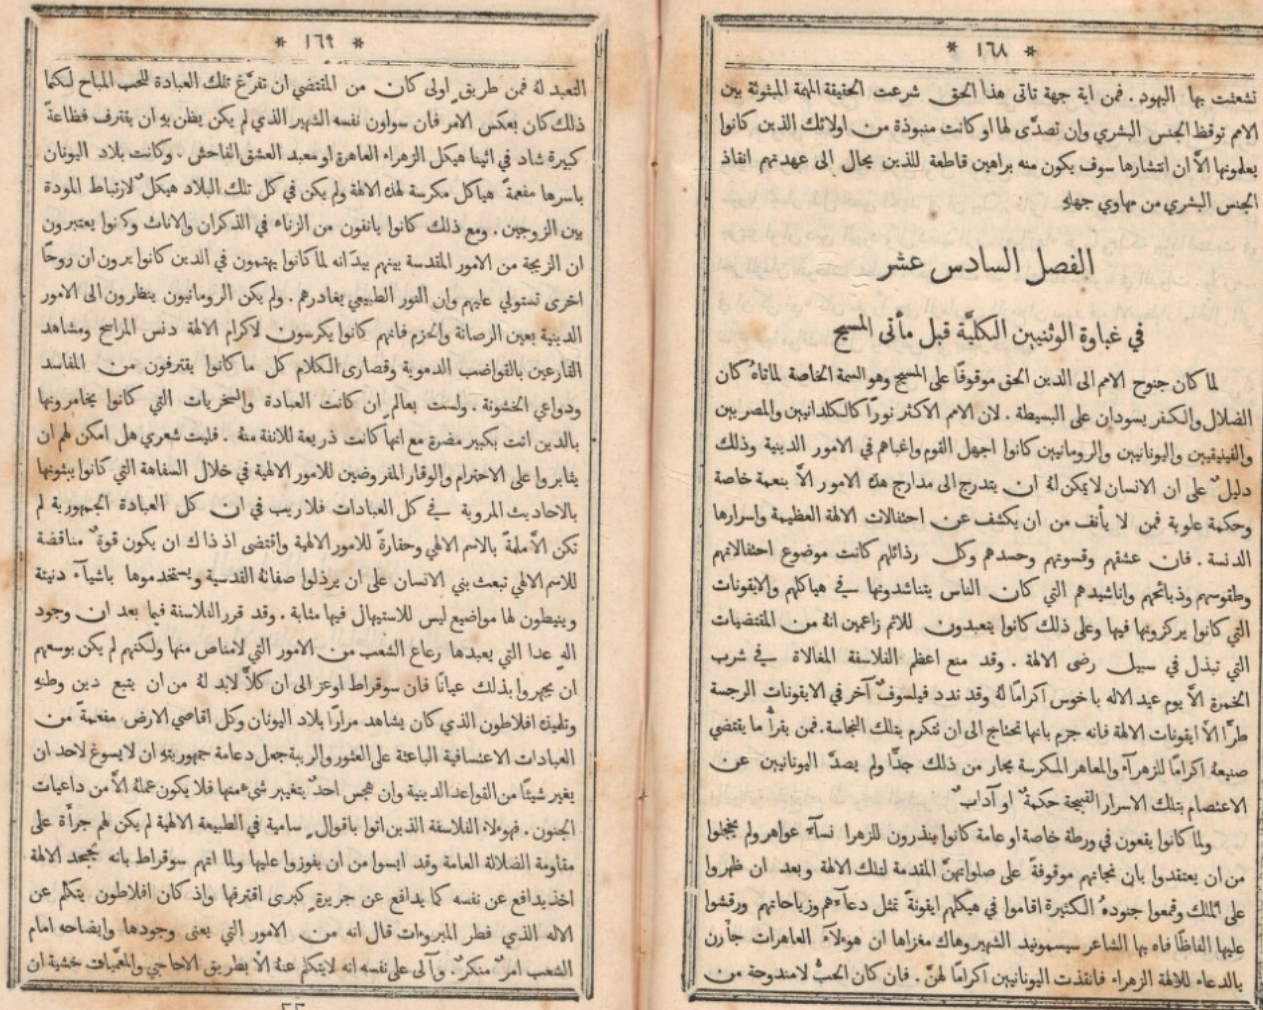 * ١٦٨ *
تشعثت بها اليهود . فمن اية جهة تاتى هذا الحق شرعت الحقيقة المهمة المبثوثة بين
الامم توقظ الجنس البشري وان تصدَّى لها او كانت منبوذة من اولائك الذين كانوا
يعلمونها الَّا ان انتشارها سوف يكون منه براهين قاطعة للذين يحال الى عهدتهم انقاذ
الجنس البشري من مهاوي جهلهِ
الفصل السادس عشر
في غباوة الوثنيين الكليَّة قبل مأتى المسيح
لما كان جنوح الامم الى الدين الحق موقوفًا على المسيح وهو السمة الخاصة لماتاهُ كان
الضلال والكفر يسودان على البسيطة . لان الامم الاكثر نورًا كالكلدانيين والمصريين
والفينيقيين واليونانيين والرومانيين كانوا اجهل القوم واغباهم في الامور الدينية وذلك
دليلٌ على ان الانسان لا يمكن لهُ ان يتدرج الى مدارج هذه الامور الَّا بنعمة خاصة
وحكمة علوية فمن لا يأنف من ان يكشف عن احتفالات الالهة العظيمة واسرارها
الدنسة . فان عشقهم وقسوتهم وحسدهم وكل رذائلهم كانت موضوع احتفالاتهم
وطقوسهم وذبائحهم واناشيدهم التي كان الناس يتناشدونها في هياكلهم والايقونات
التي كانوا يركزونها فيها وعلى ذلك كانوا يتعبدون للاثم زاعمين انهُ من المقتضيات
التي تبذل في سبيل رضى الالهة . وقد منع اعظم الفلاسفة المغالاة في شرب
الخمرة الَّا يوم عيد الاله باخوس اكرامًا لهُ وقد ندد فيلسوفٌ آخر في الايقونات الرجسة
طرًّا الَّا ايقونات الالهة فانه جزم بانها تحتاج الى ان تتكرم بتلك النجاسة . فمن يقرأُ ما يقتضي
صنيعهُ اكرامًا للزهرآء والمعاهر المكرسة يحار من ذلك جدًّا ولم يصدَّ اليونانيين عن
الاعتصام بتلك الاسرار القبيحة حكمةٌ او آدابٌ
ولما كانوا يقعون في ورطة خاصة او عامة كانوا ينذرون للزهرا نسآء عواهر ولم يخجلوا
من ان يعتقدوا بان نجاتهم موقوفة على صلواتهنَّ المقدمة لتلك الالهة وبعد ان ظهروا
على الملك وقمعوا جنودهُ الكثيرة اقاموا في هيكلهم ايقونةً تمثل دعآءهم وزياحاتهم ورقشوا
عليها الفاظًا فاه بها الشاعر سيسمونيد الشهير وهاك مغزاها ان هوءلآء العاهرات جأرن
بالدعاء للالهة الزهراء فانقذت اليونانيين اكرامًا لهنَّ . فان كان الحبُّ لا مندوحة من
* ١٦٩ *
التعبد لهُ فمن طريقٍ اولى كان من المقتضي ان تفرَّغ تلك العبادة للحب المباح لكنما
ذلك كان بعكس الامر فان سولون نفسه الشهير الذي لم يكن يظن بهِ ان يقترف فظاعةً
كبيرة شاد في اثينا هيكل الزهراء العاهرة او معبد العشق الفاحش . وكانت بلاد اليونان
باسرها مفعمةً هياكل مكرسة لهذه الالهة ولم يكن في كل تلك البلاد هيكلٌ لارتباط المودة
بين الزوجين . ومع ذلك كانوا يانفون من الزناء في الذكران والاناث وكانوا يعتبرون
ان الزيجة من الامور المقدسة بينهم بيدَ انه لما كانوا يهتمون في الدين كانوا يرون ان روحًا
اخرى تستولي عليهم وان النور الطبيعي يغادرهم . ولم يكن الرومانيون ينظرون الى الامور
الدينية بعين الرصانة والحزم فانهم كانوا يكرسون لاكرام الالهة دنس المراسح ومشاهد
القارعين بالقواضب الدموية وقصارى الكلام كل ما كانوا يقترفون من المفاسد
ودواعي الخشونة . ولست بعالمٍ ان كانت العبادة والسخريات التي كانوا يخامرونها
بالدين اتت بكبير مضرة مع انها كانت ذريعة للانفة منهُ . فليت شعري هل امكن لهم ان
يثابروا على الاحترام والوقار المفروضين للامور الالهية في خلال السفاهة التي كانوا يبثونها
بالاحاديث المروية في كل العبادات فلا ريب في ان كل العبادة الجمهورية لم
تكن الَّا ملمةً بالاسم الالهي وحقارةً للامور الالهية واقتضى اذ ذاك ان يكون قوةٌ مناقضة
للاسم الالهي تبعث بني الانسان على ان يرذلوا صفاتهُ القدسية ويستخدموها باشيآء دنيئة
وينيطون لها مواضيع ليس للاستيهال فيها مثابة . وقد قرر الفلاسفة فيما بعد ان وجود
الهٍ عدا التي يعبدها رعاع الشعب من الامور التي لا مناص منها ولكنهم لم يكن بوسعهم
ان يجهروا بذلك عيانًا فان سوقراط اوعز الى ان كلًّا لابد لهُ من ان يتبع دين وطنهِ
وتلميذه افلاطون الذي كان يشاهد مرارًا بلاد اليونان وكل اقاصي الارض مفعمةً من
العبادات الاعتسافية الباعثة على العثور والريبة جعل دعامة جمهوريتهِ ان لا يسوغ لاحد ان
يغير شيئًا من القواعد الدينية وان هجس احدٌ بتغيير شيءٍ منها فلا يكون عملهُ الَّا من داعيات
الجنون . فهوءلاء الفلاسفة الذين اتوا باقوالٍ سامية في الطبيعة الالهية لم يكن لهم جرأة على
مقاومة الضلالة العامة وقد ايسوا من ان يفوزوا عليها ولما اتهم سوقراط بانه يجحد الالهة
اخذ يدافع عن نفسه كما يدافع عن جريرةٍ كبرى اقترفها واذ كان افلاطون يتكلم عن
الاله الذي فطر المبروءات قال انه من الامور التي يعنى وجودها وايضاحه امام
الشعب امرٌ منكرٌ . وآلى على نفسه انه لا يتكلم عنهُ الَّا بطريق الاحاجي والمعمَّيات خشية ان
٢٢